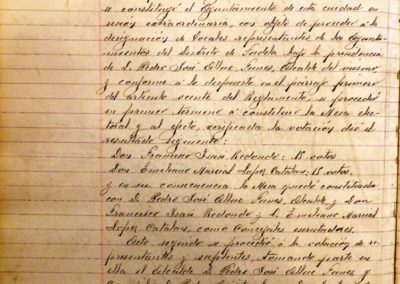 se constituyó el Ayuntamiento de esta ciudad en
sesión extraordinaria, con objeto de proceder á la
designación de Vocales representantes de los Ayunta-
mientos del Distrito de Tudela bajo la presidencia
de D. Pedro José, Alcalde del mismo
y conforme á lo dispuesto en el párrafo primero
del artículo veinte del Reglamento, se procedió
en primer término á constituir la Mesa elec-
toral y al efecto, verificada la votación dió el
resultado siguiente:
Don Francisco Isasi Redondo: 15 votos
Don Emiliano Marcial Lopez Catalan, 15 votos,
y en su consecuencia la Mesa quedó constituida
con D. Pedro José, Alcalde y Don
Francisco Isasi Redondo y D. Emiliano Marcial
Lopez Catalan, como Concejales escrutadores.
Acto seguido se procedió á la votación de re-
presentantes y suplentes, tomando parte en
ella el Alcalde D. Pedro José y